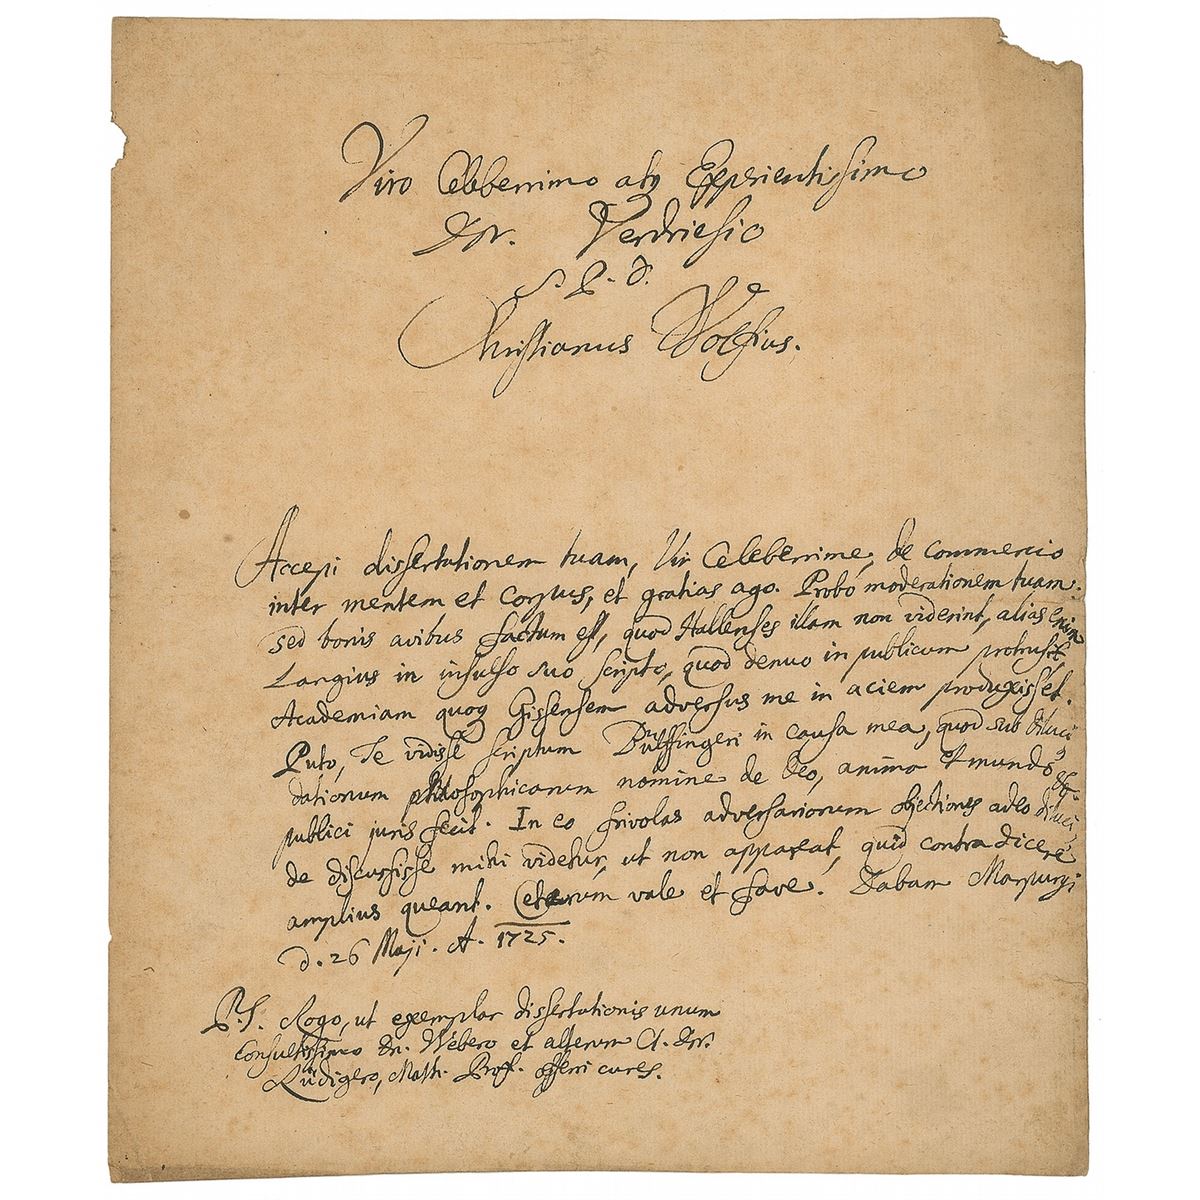 Viro Celeberrimo atq Experientissimo
Dn. Verdriesio
S. P. D.
Christianus Wolfius.
Accepi dissertationem tuam, Vir Celeberrime, de commercio
inter mentem et corpus, et gratias ago. Probo moderationem tuam:
sed bonis avibus factum est, quod Hallenses illam non viderint, alias enim
Langius in insulso suo scripto, quod denuo in publicum protrusit,
Academiam quoq Gissensem adversus me in aciem produxisset.
Puto, Te vidisse scriptum Bulffingeri in causa mea, quod sub diluci
dationum philosophicarum nomine de Deo, anima et mundo
publici juris fecit. In eo frivolas adversariorum objectiones adeo diluci
de discussisse mihi videtur, ut non appareat, quid contradicere
amplius queant. Ceterum vale et fave. Dabam Marpurgi
d. 26 Maji. A. 1725.
P.S. Rogo, ut exemplar dissertationis unum
Consultissimo Dn. Webero et alterum Cl. Dn.
Rüdigero, Math. Prof. offerri cures.